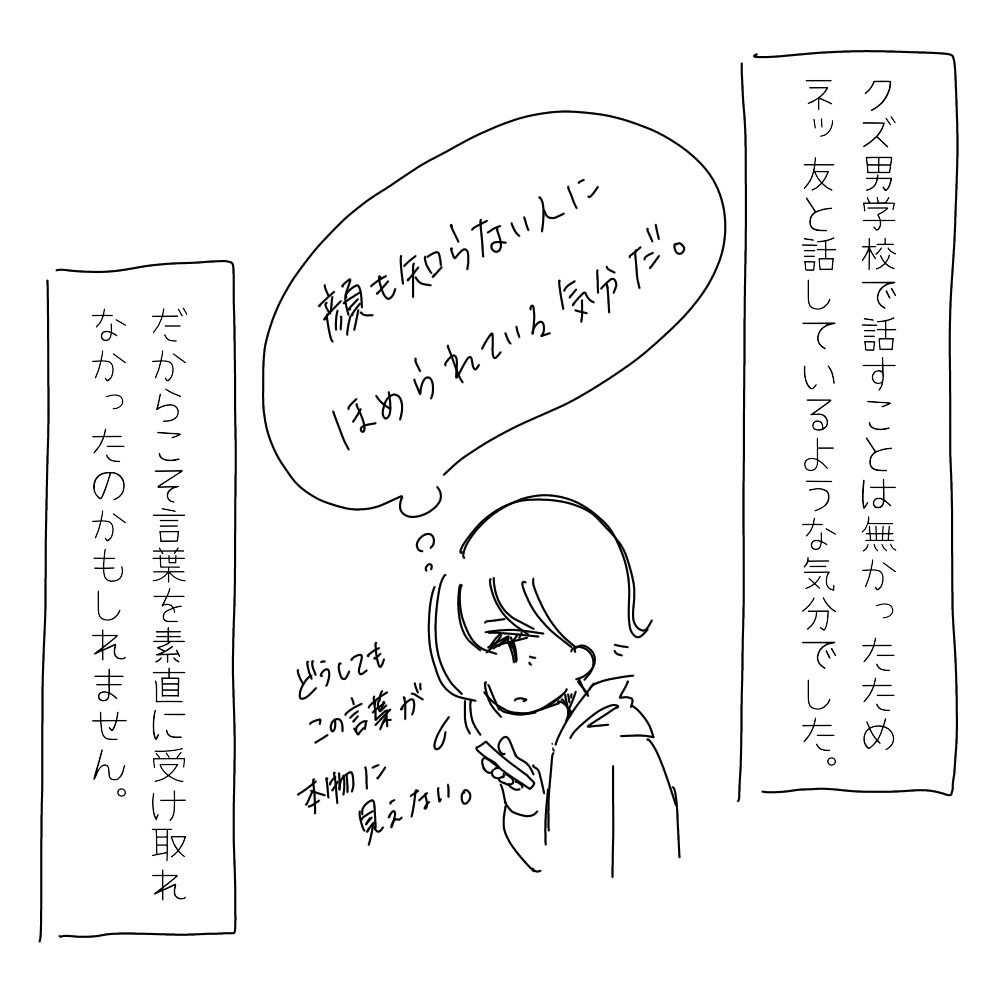 クズ男学校で話すことは無かったため
ネッ友と話しているような気分でした。
顔も知らない人に
ほめられている気分だ。
どうしても
この言葉が
本物に
見えない。
だからこそ言葉を素直に受け取れ
なかったのかもしれません。